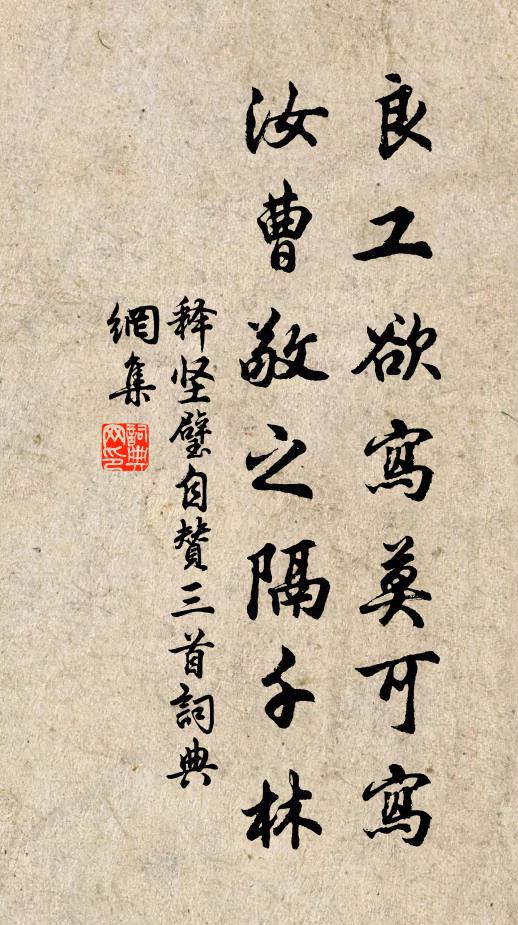 良工欲寫莫可寫
汝曹敬之隔千林
释坚璧自赞三首詞典
網集
詞典網印